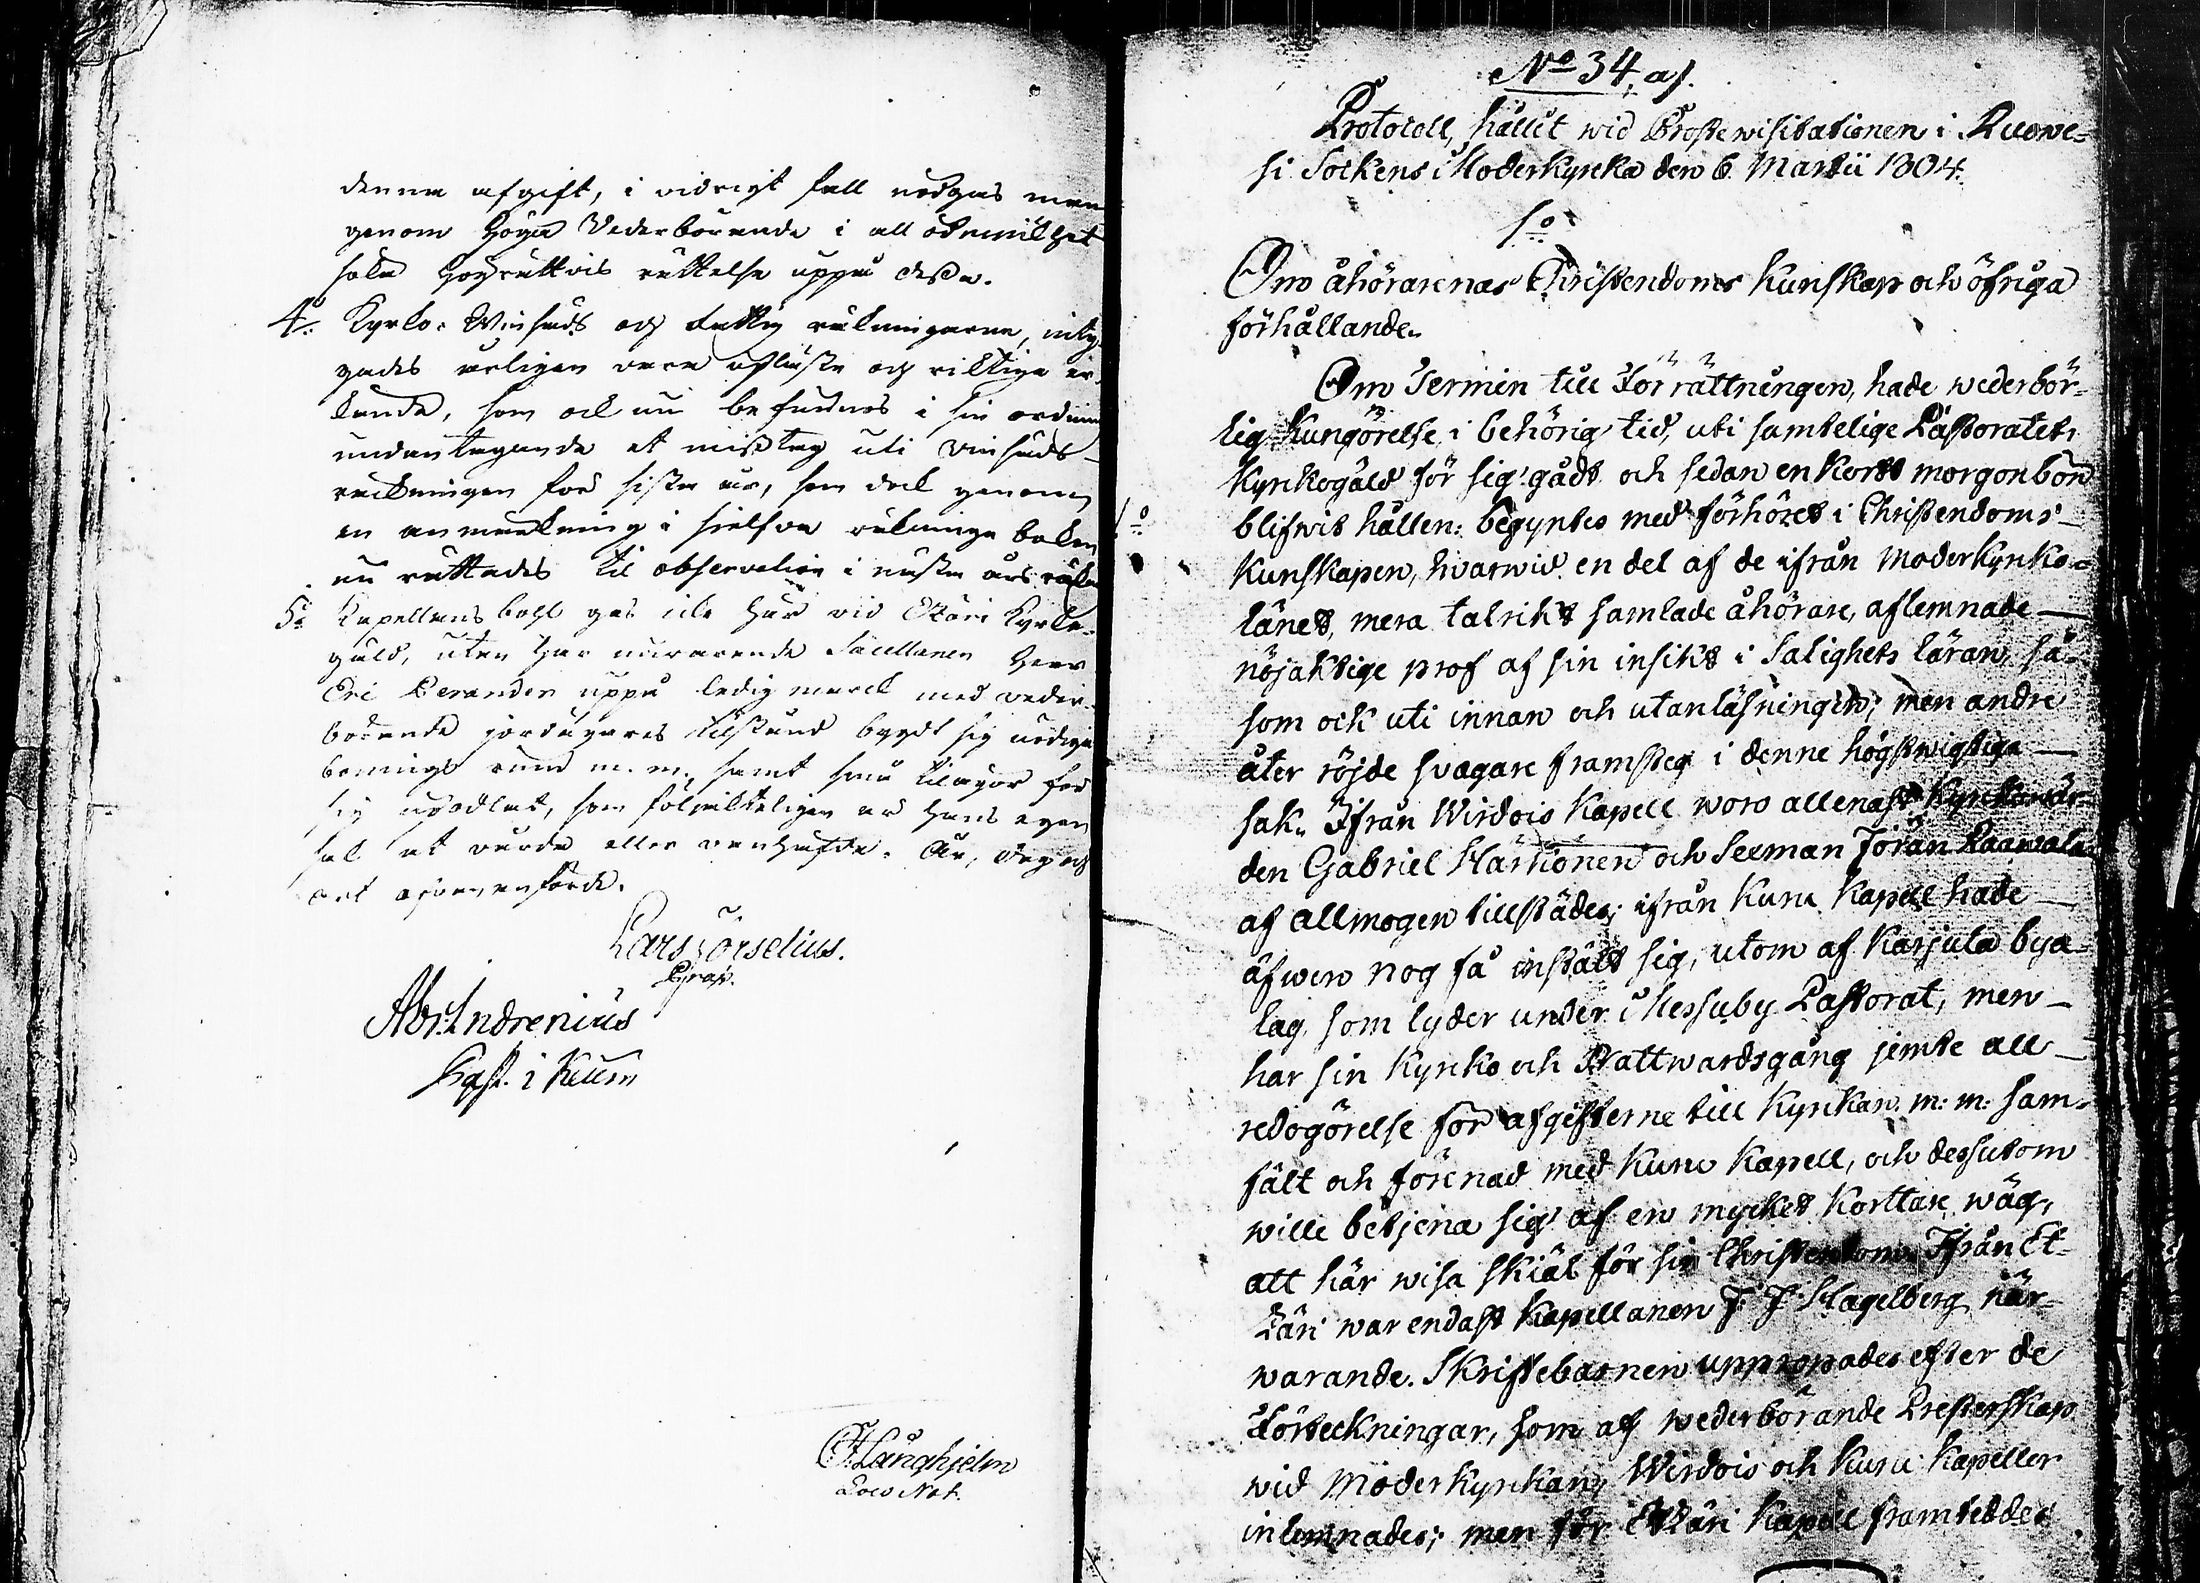 denna afgift, i vidrigt fall nödgas man
genom Höga Vederbörande i all ödmiukhet
söka Högrättvis rättelse uppå dessa.
4o. Kyrko- Winhuds och Fattig räkningarne, inty-
gades årligen vara aflästa och riktiga er-
kända, som ock nu befunnos i sin ordning
undantagande et misstag uti Vinhuds-
räkningen for sista år, som dock genom
en anmärkning i sielfva räkninga boken
nu rättades til observation i nästa års räkn
5o Kapellans boll gas icke här vid Etzäri Kyrko-
gäld, utan har nuvarande Sacellanen Herr
Eric Perander uppå ledig marck med veder-
börande jordägares tilstånd bygdt sig nödiga
bonings rum m. m. samt små tilägor för
sig upodlat, som följakteligen är hans egen
sak at vårda eller vanhäfda. År, dag och
ort ofvanskrefne.
Lars Forselius.
Præp.
Abr. Indrenius
Kapl. i Kuru
O. F. Langhjelm
Loco Not.
No 34, a).
Protocoll, hållit wid Proste wisitationen i Ruowe-
si Sockens Moderkyrka den 6 Martii 1804.
1o
Om åhörarenas Christendoms kunskap och öfriga
förhållande.
Om Termin till Förrättningen, hade wederbör-
lig Kungörelse i behörig tid, uti samtelige Pastoratets
Kyrkogäld för sig gådt och sedan en kort morgonbön
blifwit hållen: begyntes med förhöret i Christendoms-
1o
kunskapen, hwarwid en del af de ifrån Moderkyrko-
länet, mera talrikt samlade åhörare, aflemnade
nöjaktige prof af sin insikt i Salighets läran, så-
som ock uti innan och utanläsningen; men andre
åter röjde svagare framsteg i denne högstwigtiga
sak. Ifrån Wirdois Kapell woro allenast Kyrkowär-
den Gabriel Härkönen och Sexman Jöran Raawala
af allmogen tillstädes; ifrån Kuru Kapell hade
äfwen nog få instält sig, utom af Karjula bya-
lag, som lyder under Messuby Pastorat, men
har sin Kyrko och Nattwardsgång jemte all
redogörelse för afgifterne till Kyrkan m: m: sam-
fält och förenad med Kuru Kapell, och dessutom
wille betjena sig af en mycket kortare wäg,
att här wisa skiäl för sin Christendom. Ifrån Et-
zäri war endast Kapellanen J. J. Hagelberg när-
warande. Skriftebarnen uppropades efter de
Förteckningar, som af wederbörande Presterskap
wid Moderkyrkan, Wirdois och Kuru Kapeller
inlemnades; men för Etzäri Kapell framteddes